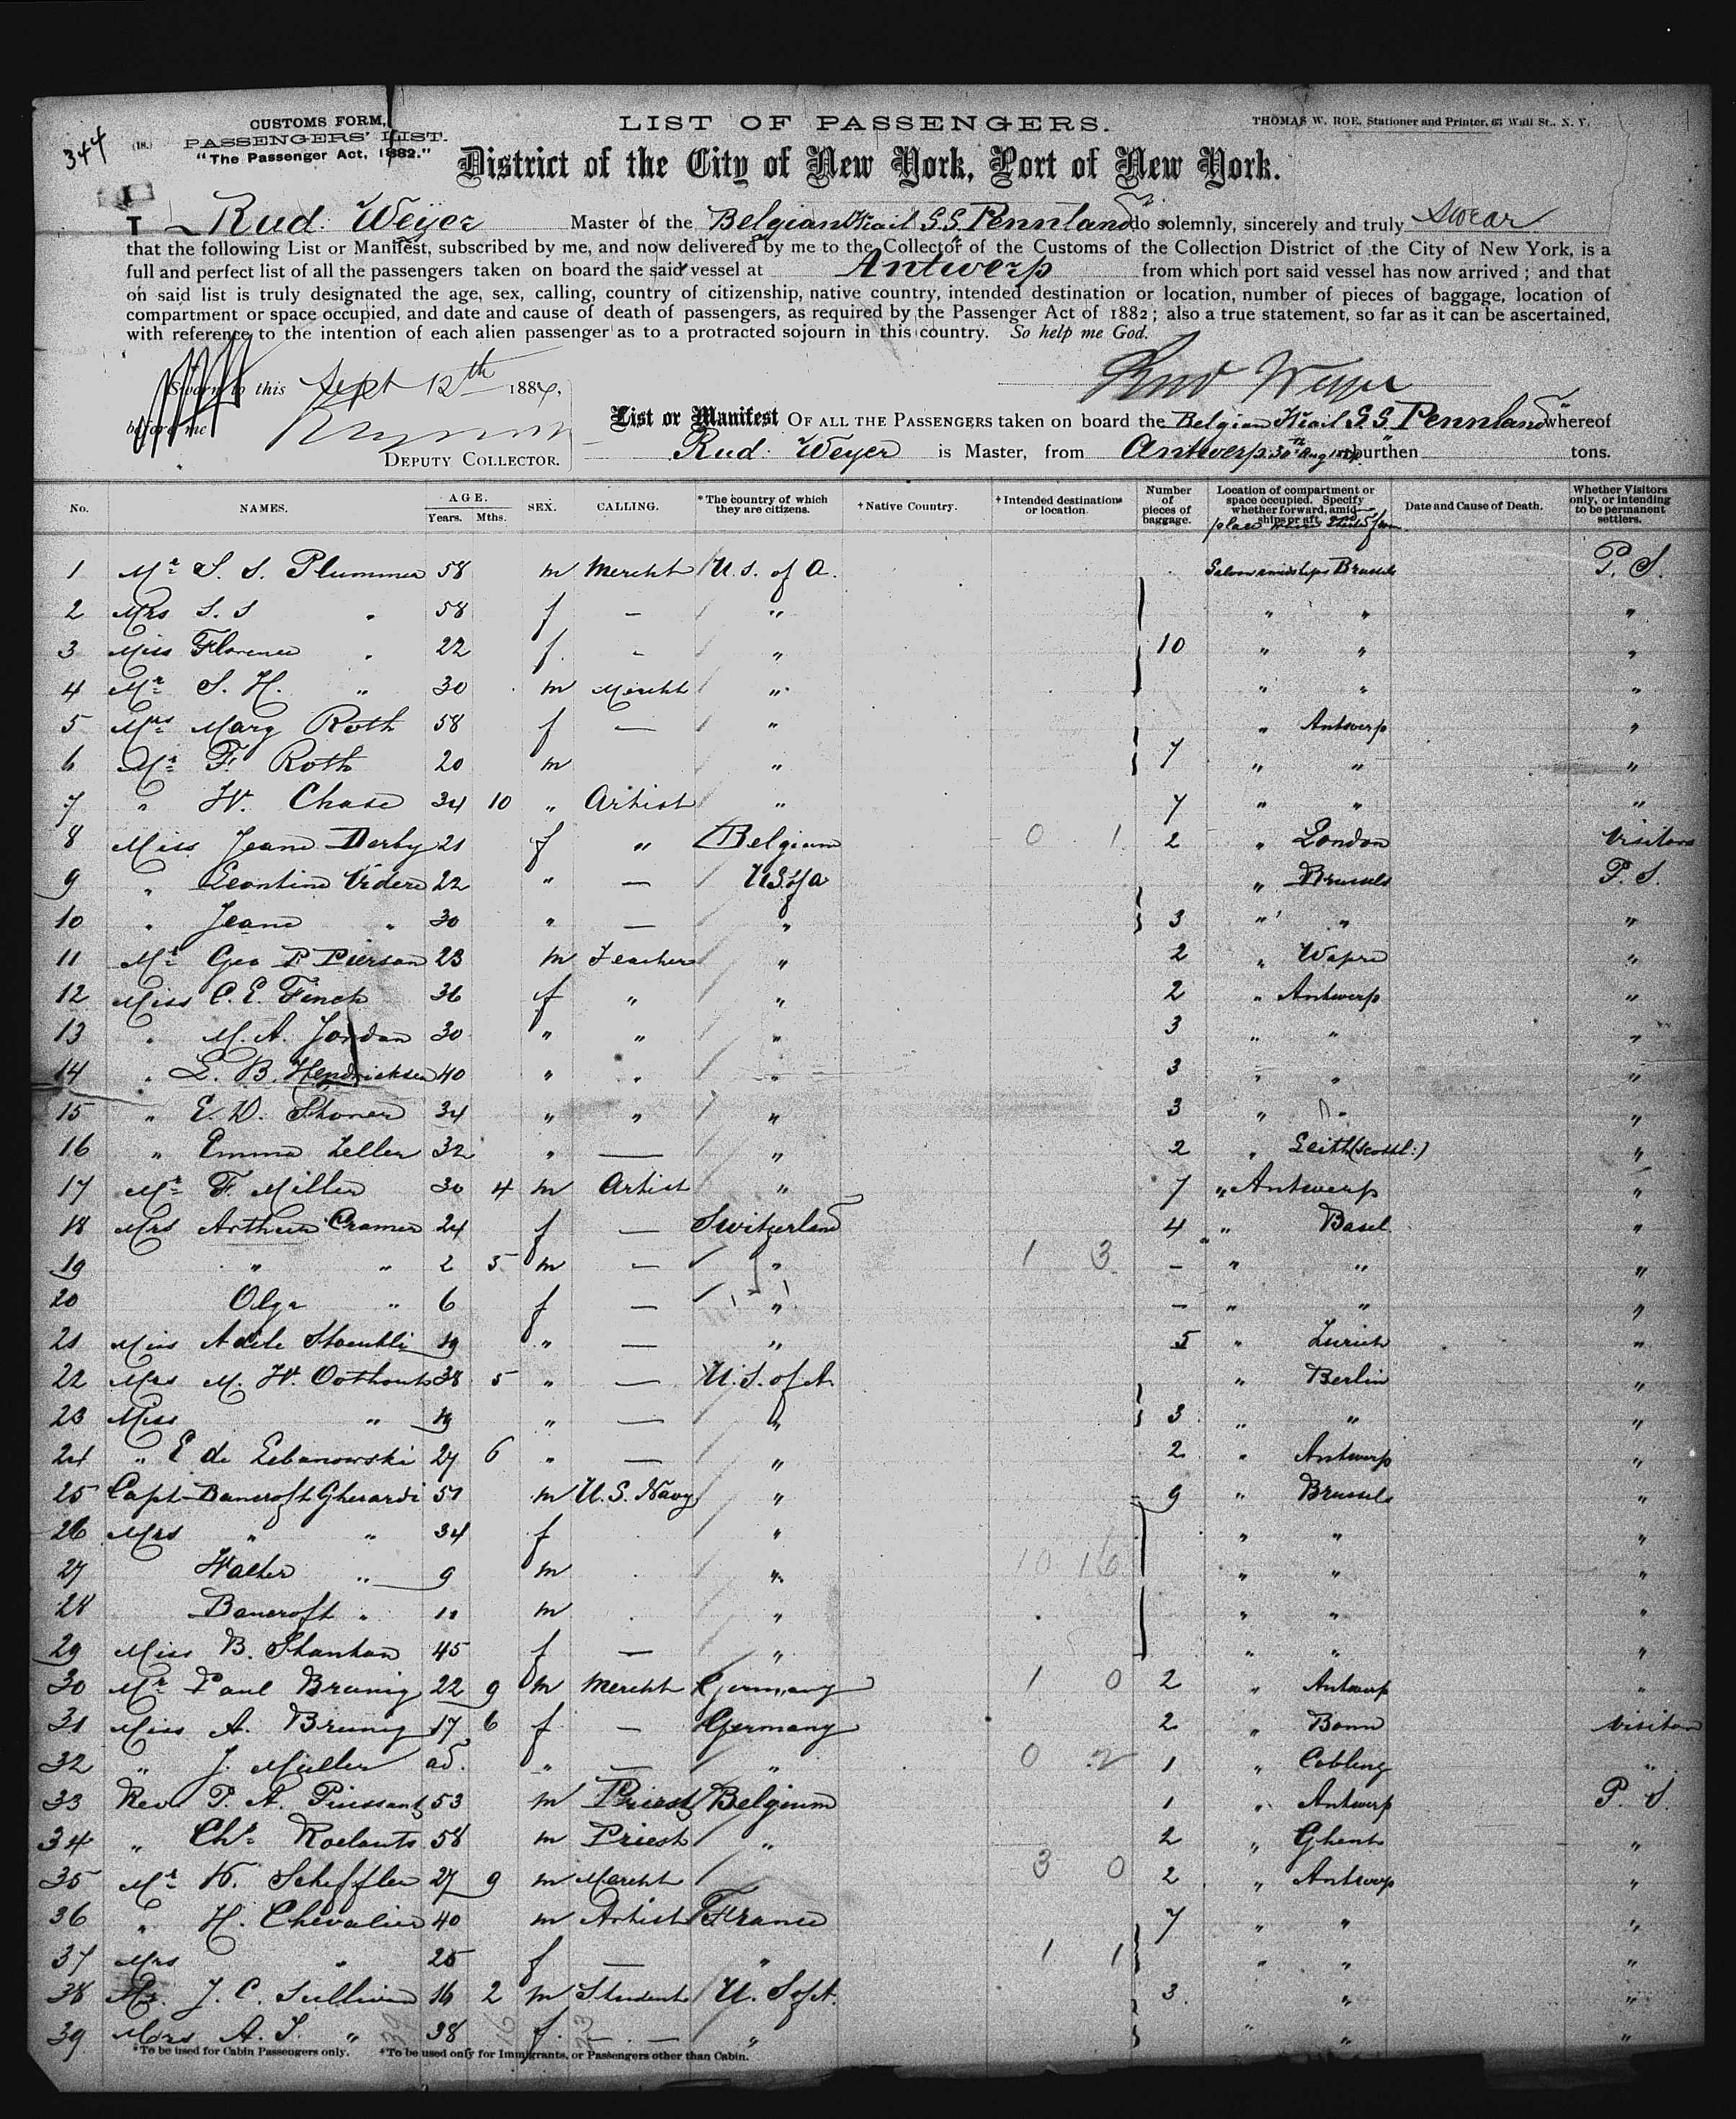 344
(18.)
CUSTOMS FORM,
PASSENGERS' LIST.
"The Passenger Act, 1882."
LIST OF PASSENGERS.
THOMAS W. ROE, Stationer and Printer, 63 Wall St., N. Y.
District of the City of New York, Port of New York.
I Rud. Weyer Master of the Belgian S.S. Pennland do solemnly, sincerely and truly swear
that the following List or Manifest, subscribed by me, and now delivered by me to the Collector of the Customs of the Collection District of the City of New York, is a
full and perfect list of all the passengers taken on board the said vessel at Antwerp from which port said vessel has now arrived ; and that
on said list is truly designated the age, sex, calling, country of citizenship, native country, intended destination or location, number of pieces of baggage, location of
compartment or space occupied, and date and cause of death of passengers, as required by the Passenger Act of 1882 ; also a true statement, so far as it can be ascertained,
with reference to the intention of each alien passenger as to a protracted sojourn in this country. So help me God.
Sworn to this Sept 12th 1884,
Rud Weyer
before me
DEPUTY COLLECTOR.
List or Manifest OF ALL THE PASSENGERS taken on board the Belgian S.S. Pennland whereof
Rud. Weyer is Master, from Antwerp 30th Aug burthen tons.
No. NAMES. AGE. Years. Mths. SEX. CALLING. *The country of which they are citizens. †Native Country. †Intended destination or location. Number of pieces of baggage. Location of compartment or space occupied. Specify whether forward, amidships or aft. Date and Cause of Death. Whether Visitors only, or intending to be permanent settlers.
1 Mr S. S. Plummer 58 m Mercht U. S. of A. Saloon amidships Brussels P. S.
2 Mrs S. S " 58 f — " " " "
3 Miss Florence " 22 f - " 10 " " "
4 Mr S. H. " 30 m Mercht " " " "
5 Mrs Marg Roth 58 f — " " Antwerp "
6 Mr F. Roth 20 m " 7 " " "
7 " W. Chase 34 10 " Artist " 7 " " "
8 Miss Jeane Derby 21 f " Belgium 0 1 2 " London Visitors
9 " Leontine Videre 22 " — U.S. of A " Brussels P. S.
10 " Jeane " 30 " — " 3 " " "
11 Mr Geo P. Pierson 23 m Teacher " 2 " Wapre "
12 Miss C. E. Finch 36 f " " 2 " Antwerp "
13 " M. A. Jordan 30 " " " 3 " " "
14 " L. B. Hendricksen 40 " " " 3 " " "
15 " E. D. Shoner 34 " " " 3 " " "
16 " Emma Zeller 32 " — " 2 " Leith (Scotl:) "
17 Mr F. Miller 30 4 m Artist " 7 " Antwerp "
18 Mrs Arthur Cramer 24 f — Switzerland 4 " Basel "
19 " " 2 5 m — " 1 3 – " " "
20 Olga " 6 f — " – " " "
21 Miss Adele Stoeckli 19 " — " 5 " Zurich "
22 Mrs M. W. Oothout 38 5 " — U. S. of A. " Berlin "
23 Miss " 19 " — " 3 " " "
24 " E de Lebanowski 27 6 " — " 2 " Antwerp "
25 Capt Bancroft Gherardi 51 m U. S. Navy " 9 " Brussels "
26 Mrs " " 34 f " " " "
27 Walter " 9 m " 10 16 " " "
28 Bancroft " 11 m " " " "
29 Miss B. Shanhan 45 f — " " " "
30 Mr Paul Brunig 22 9 m Mercht Germany 1 0 2 " Antwerp "
31 Miss A. Brunig 17 6 f — Germany 2 " Bonn Visitors
32 " J. Muller ad. " — " 0 2 1 " Coblenz "
33 Rev. P. A. Puissant 53 m Priest Belgium 1 " Antwerp P. S.
34 " Chs Roelants 58 m Priest " 2 " Ghent "
35 Mr K. Scheffler 27 9 m Mercht 3 0 2 " Antwerp "
36 " H. Chevalier 40 m Artist France 7 " " "
37 Mrs " 25 f — " 1 1 " " "
38 Mr. J. C. Sullivan 16 2 m Student U. S of A. 3 " "
39 Mrs A. S. " 38 f. — " " " "
*To be used for Cabin Passengers only. †To be used only for Immigrants, or Passengers other than Cabin.